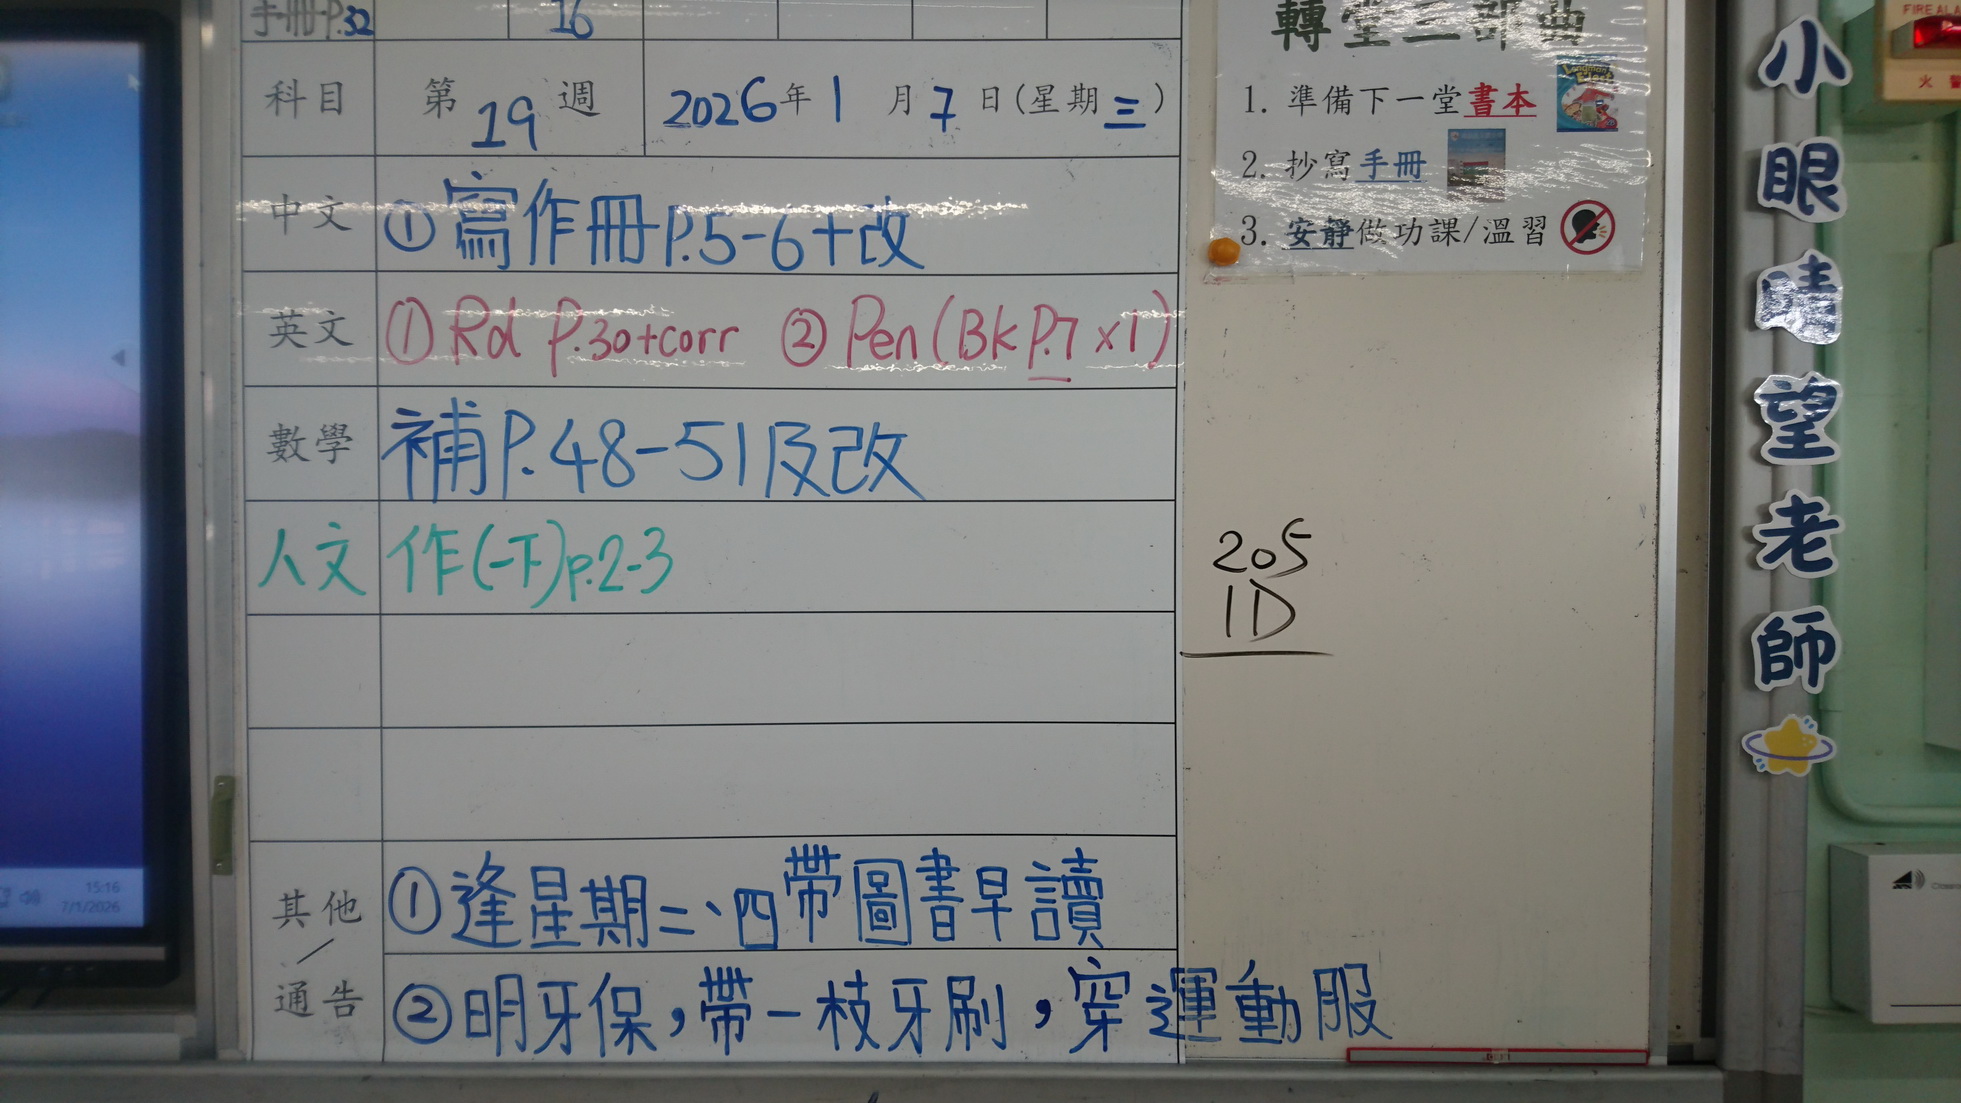 手冊P.32
16
科目 第19週 2026年1月7日(星期三)
中文 ①寫作冊P.5-6+改
英文 ①Rd P.30+corr ②Pen(Bk P.7×1)
數學 補P.48-51及改
人文 作(一下)p.2-3
其他/通告 ①逢星期二、四帶圖書早讀
②明牙保,帶一枝牙刷,穿運動服
轉堂三部曲
1. 準備下一堂書本
2. 抄寫手冊
3. 安靜做功課/溫習
205
1D
小眼睛望老師
15:16
7/1/2026
FIRE ALA
火警